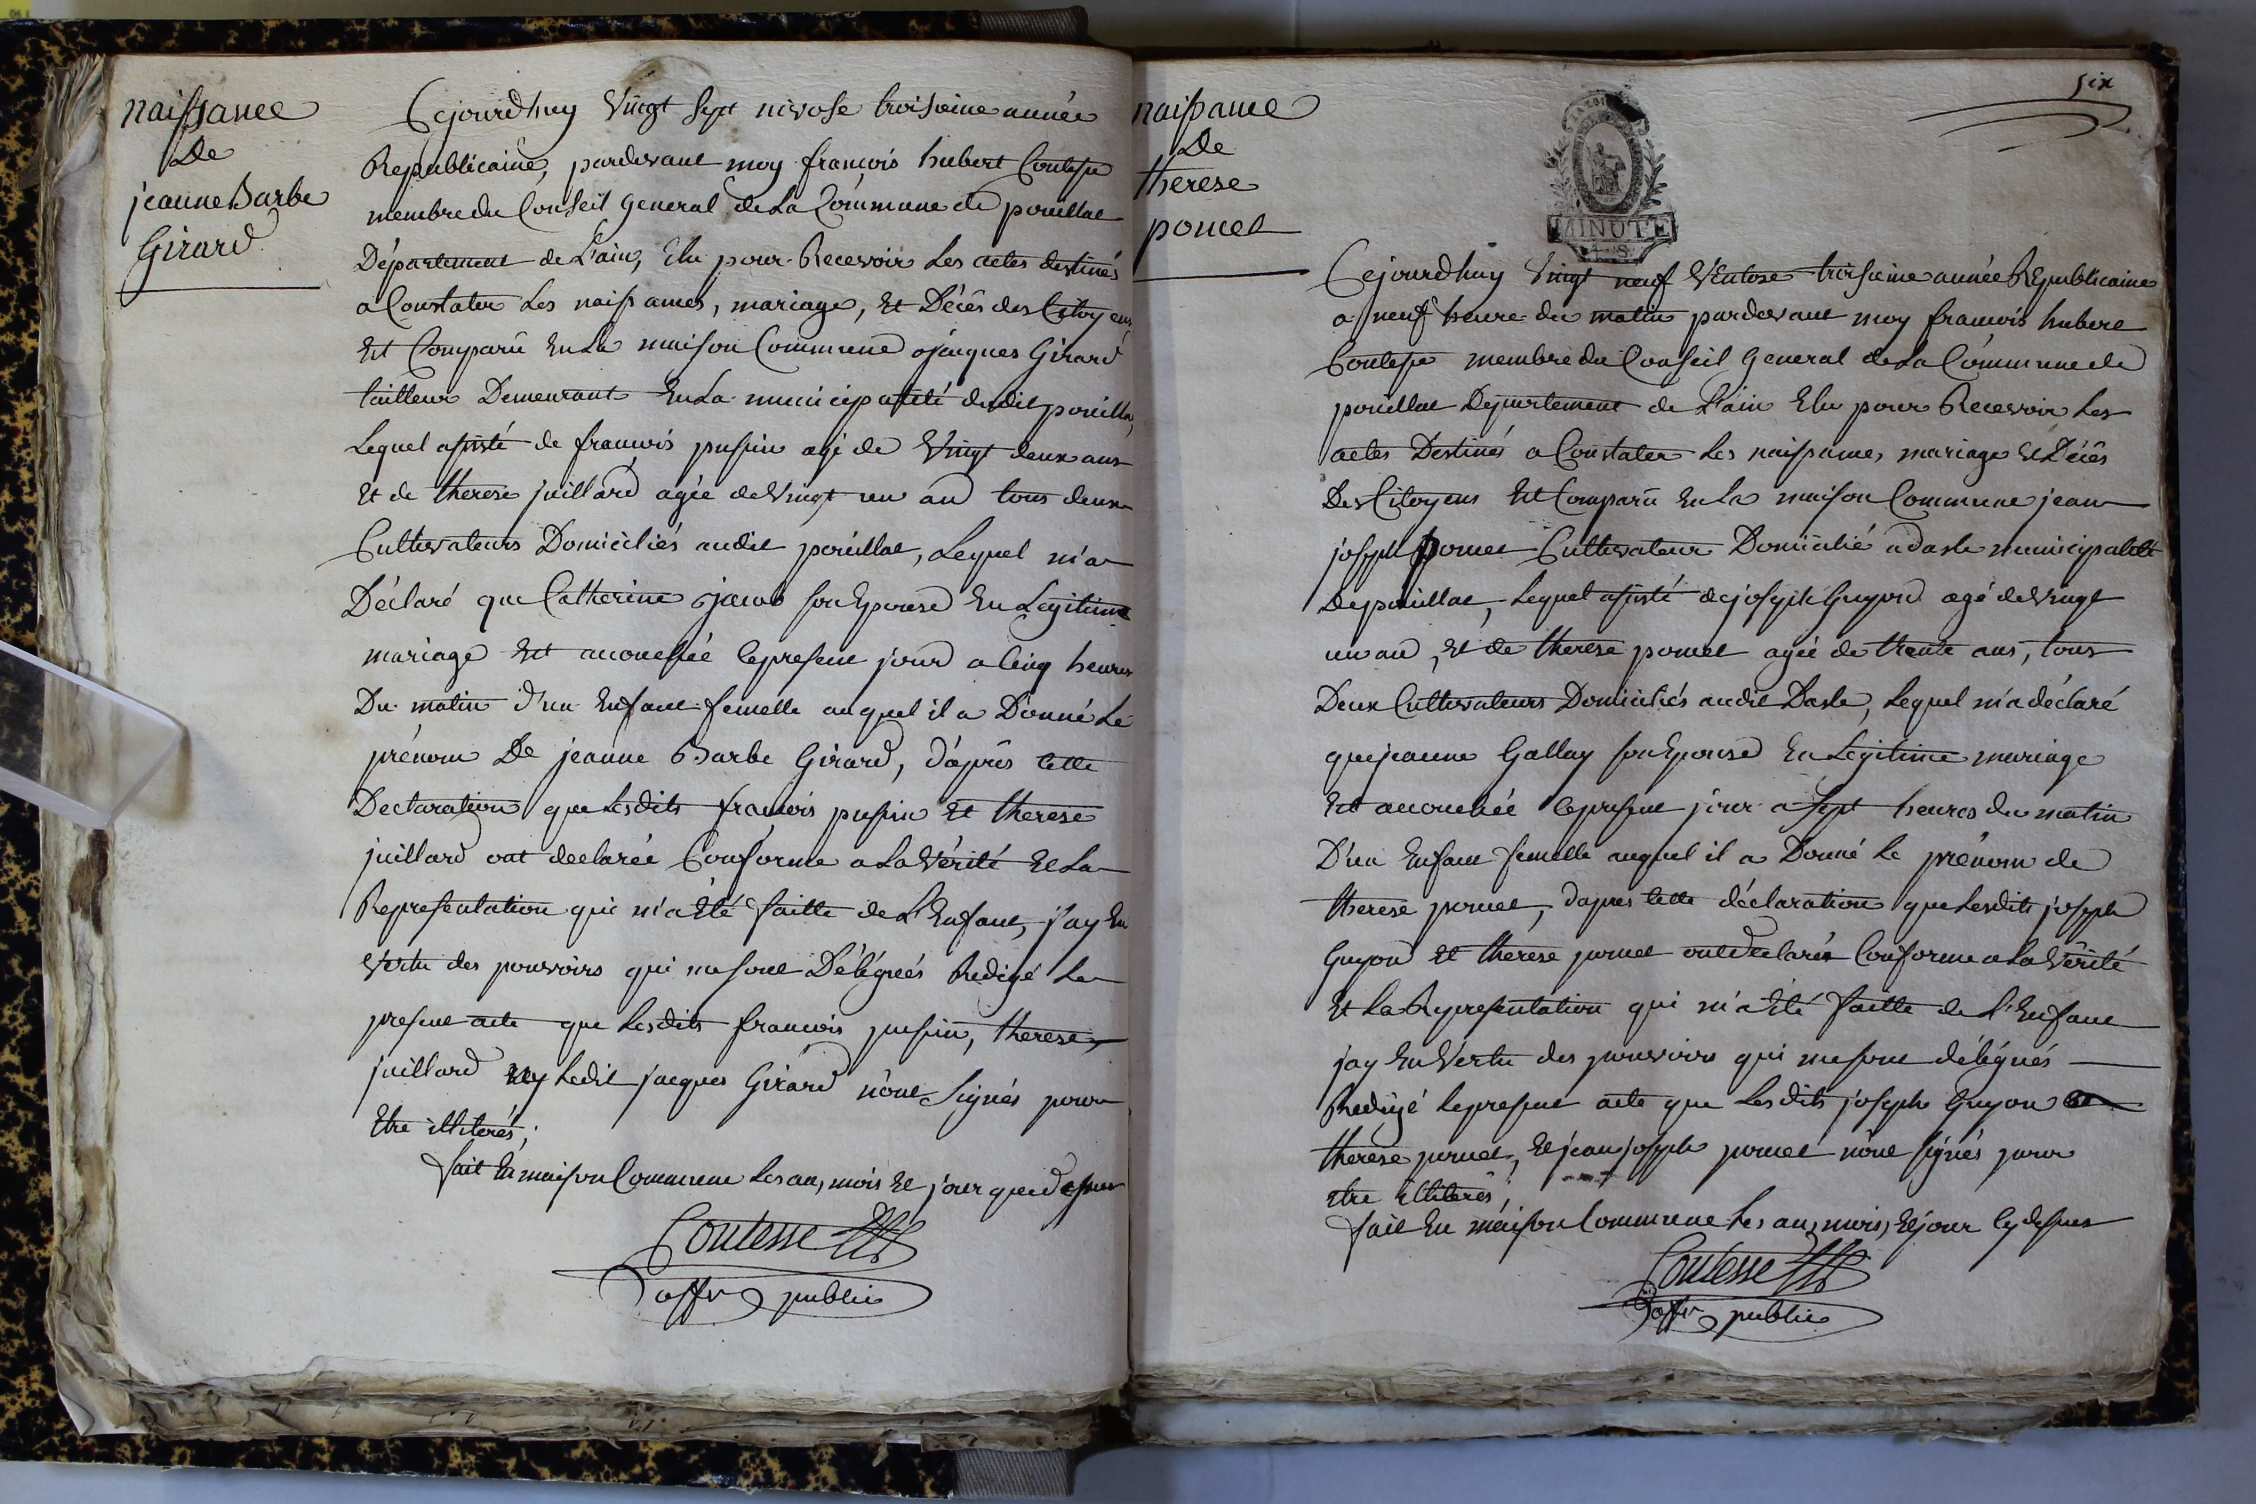 naissance
De
jeanne Barbe
Girard
Cejourdhuy Vingt Sept nivose troisieme année
Republicaine, pardevant moy françois hubert Contesse
membre du Conseil General de La Commune de pouillat
Département de L'ain, Elu pour Recevoir Les actes destinés
a Constater Les naissances, mariage, Et Décès des Citoyens,
Est Comparû En La maison Commune jacques Girard
tailleur Demeurant En La municipalité dudit pouillat,
Lequel assisté de françois pussin agé de Vingt deux ans
Et de therese juillard agée de Vingt un an tous deux
Cultivateurs Domiciliés audit pouillat, Lequel m'a
Déclaré que Catherine jacob son Epouse En Legitime
mariage Est accouchée le present jour a Cinq heures
Du matin d'un Enfant femelle auquel il a Donné Le
prénom De jeanne Barbe Girard, d'après Cette
Declaration que Lesdits françois pussin Et therese
juillard ont declarée Conforme a La Vérité Et La
Representation qui m'a Eté faitte de L'Enfant, j'ay En
Vertu des pouvoirs qui me sont Délégués Redigé Le
present acte que Lesdits francois pussin, therese
juillard Ledit jacques Girard n'ont Signés pour
Etre illiterés;
fait En maison Commune Les an, mois Et jour que dessus
Contesse
offr public
six
naissance
De
therese
poncet
MINUTE
Cejourdhuy Vingt neuf Ventose troisieme année Republicaine
a neuf heure du matin pardevant moy francois hubert
Contesse membre du Conseil General de La Commune de
pouillat Département de L'ain Elu pour Recevoir Les
actes Destinés a Constater Les naissances, mariage Et Décès
Des Citoyens Est Comparû En La maison Commune jean
joseph poncet Cultivateur Domicilié a dasle municipalité
De pouillat, Lequel assisté de joseph Guyon agé de Vingt
un an, Et de therese poncet agée de trente ans, tous
Deux Cultivateurs Domiciliés audit Dasle, Lequel m'a déclaré
que jeanne Gallay son Epouse En Legitime mariage
Est accouchée le present jour a Sept heures du matin
D'un Enfant femelle auquel il a Donné Le prénom de
therese poncet, d'apres Cette déclaration que Lesdits joseph
Guyon Et therese poncet ont declarés Conforme a La Vérité
Et La Representation qui m'a Eté faitte de L'Enfant
jay En Vertu des pouvoirs qui me sont délégués
Redigé Le present acte que Lesdits joseph Guyon
therese poncet, Et jean joseph poncet n'ont signés pour
etre illiterés;
fait En maison Commune Les an, mois, Et jour Cy dessus
Contesse
offr public